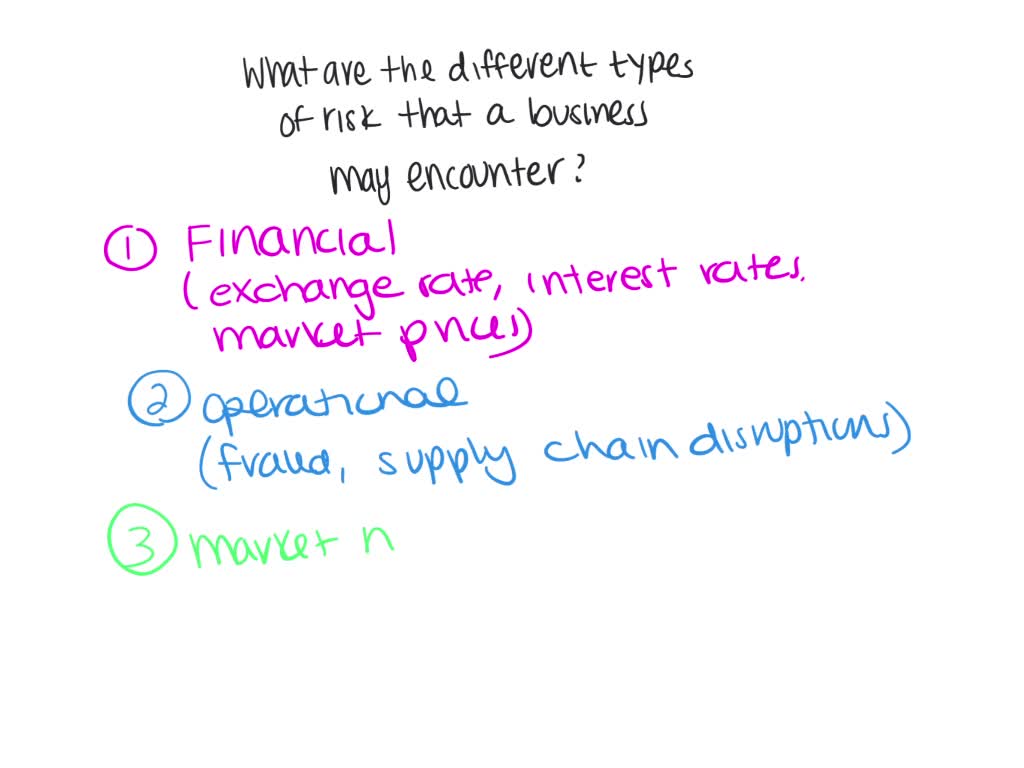 What are the different types
of risk that a business
may encounter?
① Financial
(exchange rate, interest rates.
market prices)
② operational
(fraud, supply chain disruptions)
③ market n